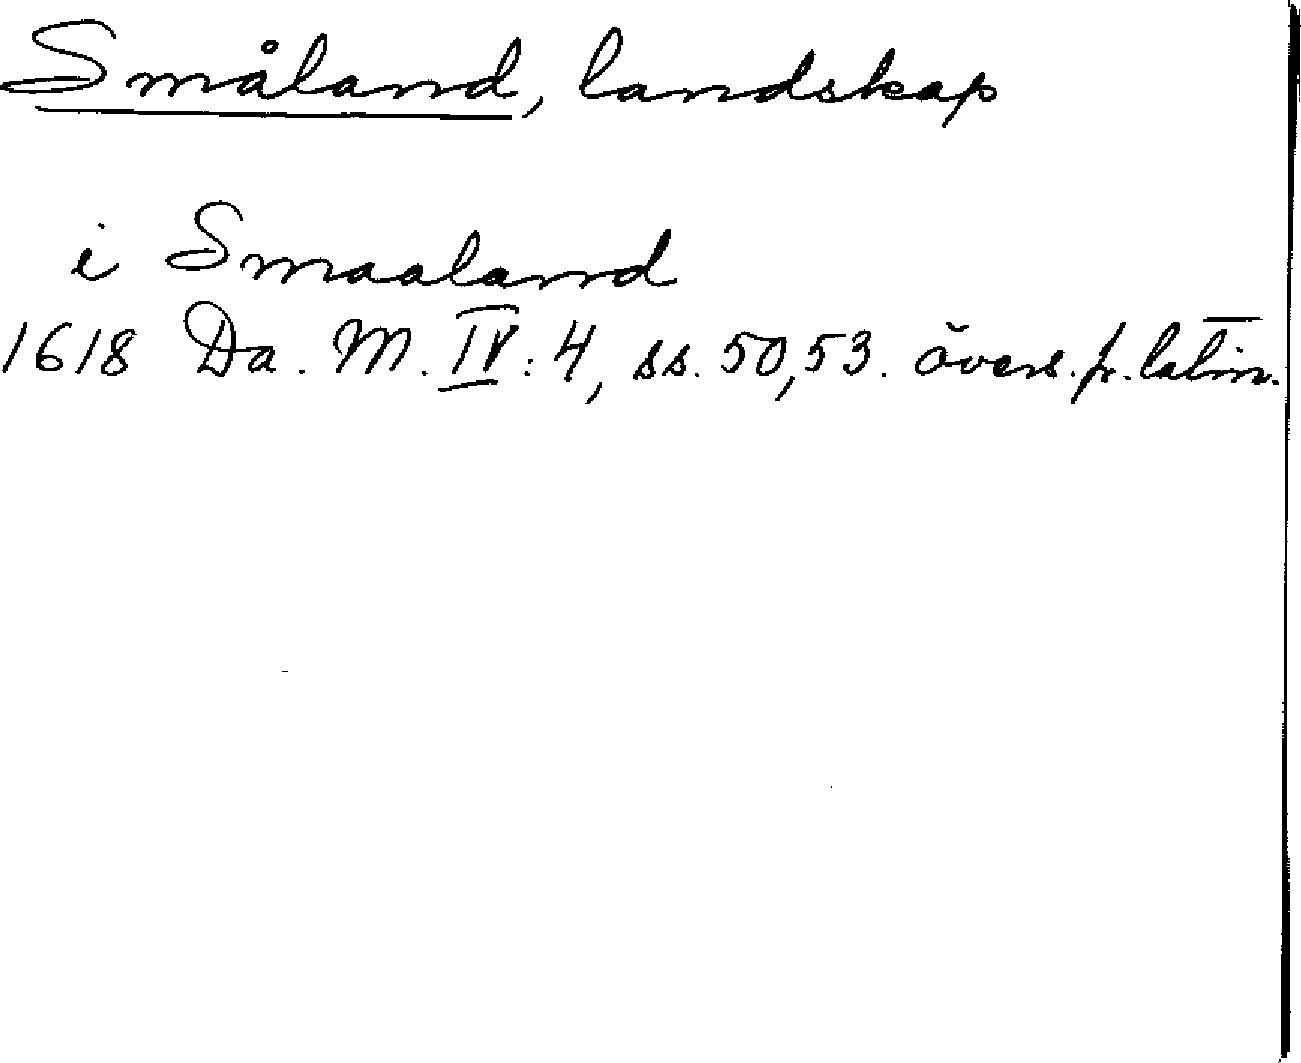 Småland, landskap
i Smaaland
1618 Da. M. IV:4, ss. 50,53. övers. fr. latin.